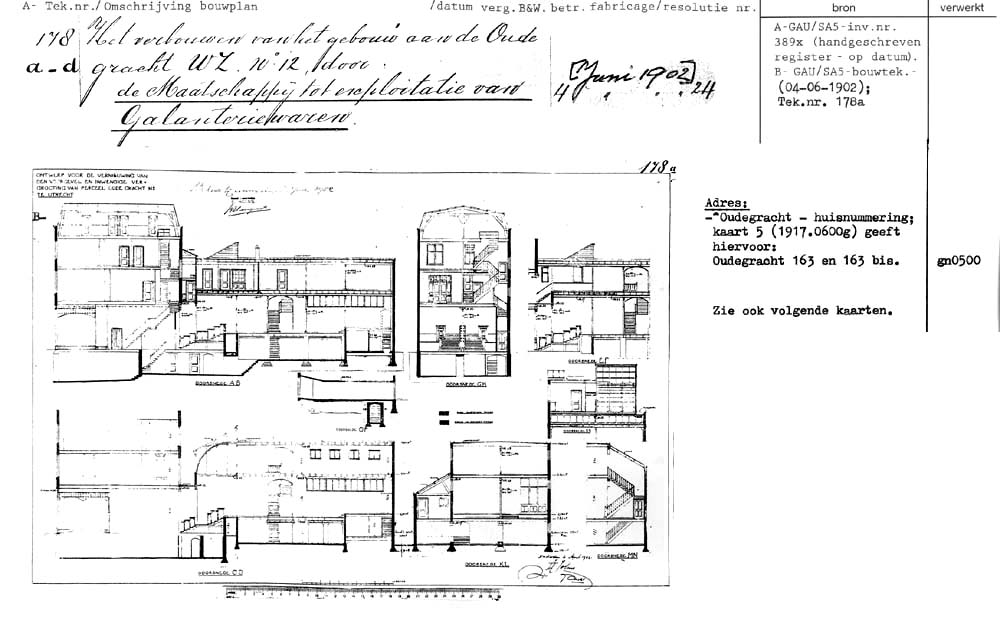 A- Tek.nr./Omschrijving bouwplan /datum verg.B&W. betr. fabricage/resolutie nr. bron verwerkt
178 Het verbouwen van het gebouw aan de Oude
a-d gracht WZ. no 12, door
de Maatschappij tot exploitatie van
Galanteriewaren.
[Juni 1902]
4 " . " 24
A-GAU/SA5-inv.nr.
389x (handgeschreven
register - op datum).
B- GAU/SA5-bouwtek.-
(04-06-1902);
Tek.nr. 178a
178 a
ONTWERP VOOR DE VERNIEUWING VAN
DEN VOORGEVEL EN INWENDIGE VER-
GROOTING VAN PERCEEL OUDE GRACHT No
TE UTRECHT
B
DOORSNEDE AB
DOORSNEDE GH
DOORSNEDE EF
DOORSNEDE CD
DOORSNEDE KL
DOORSNEDE MN
Adres:
-"Oudegracht - huisnummering;
kaart 5 (1917.0600g) geeft
hiervoor:
Oudegracht 163 en 163 bis. gn0500
Zie ook volgende kaarten.